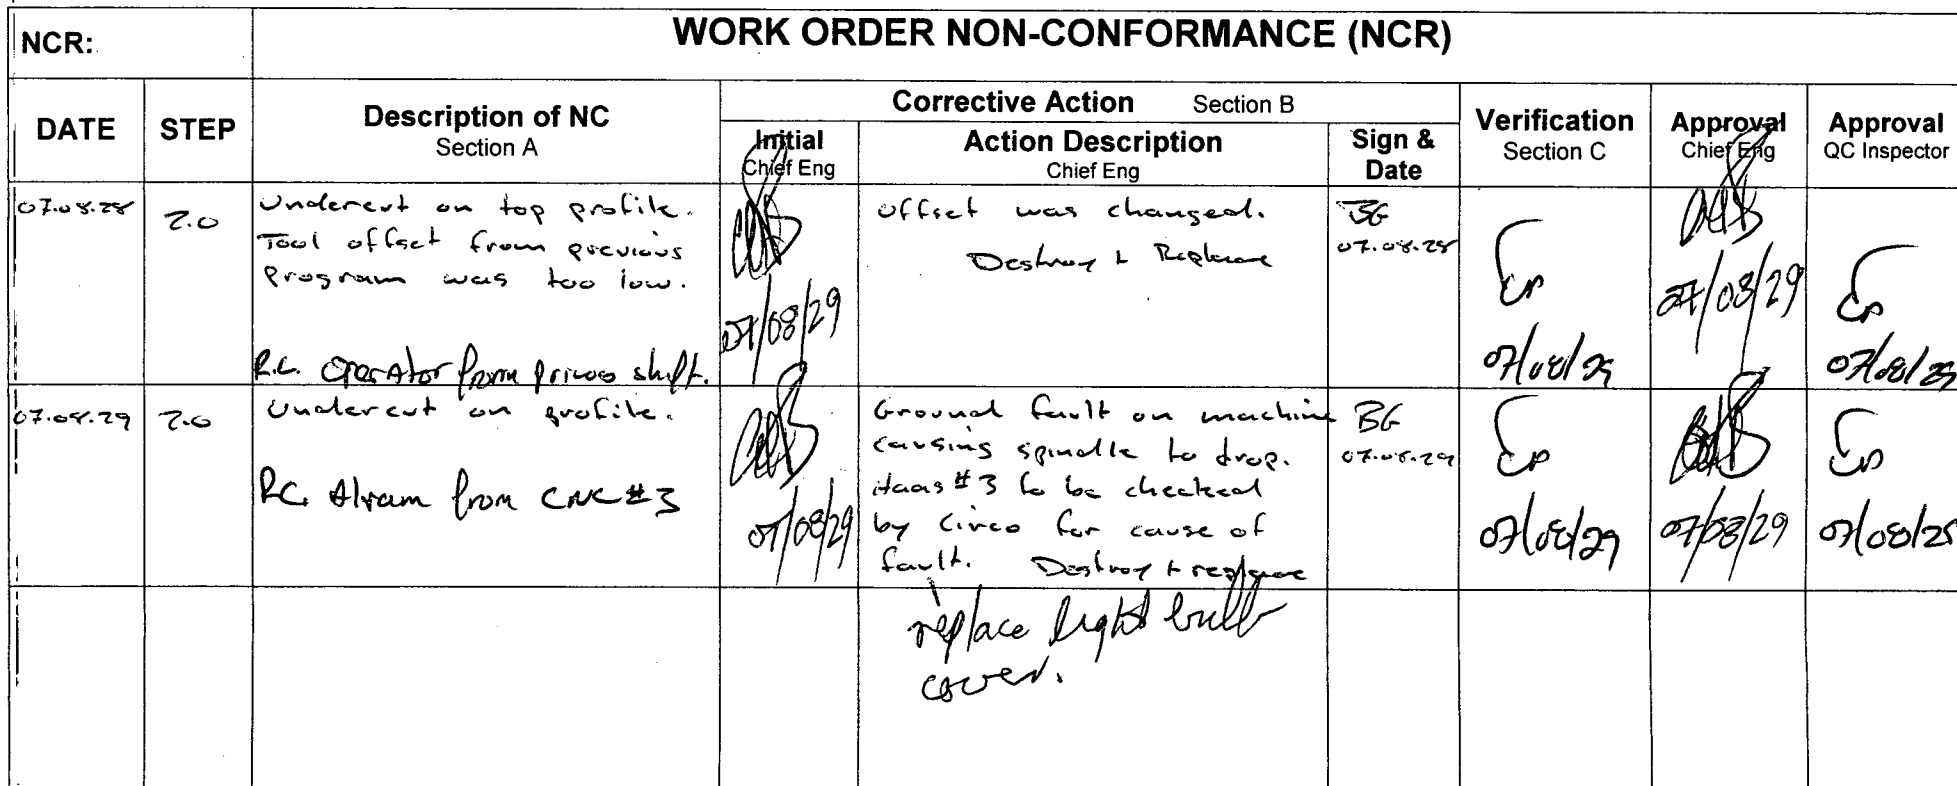 NCR:
WORK ORDER NON-CONFORMANCE (NCR)
DATE
STEP
Description of NC
Section A
Corrective Action Section B
Initial
Chief Eng
Action Description
Chief Eng
Sign &
Date
Verification
Section C
Approval
Chief Eng
Approval
QC Inspector
07.08.28
7.0
Undercut on top profile.
Tool offset from previous
program was too low.
R.C. Operator from shift.
07/08/29
Offset was changed.
Destroy + Replace
BG
07.08.28
07/08/29
07/08/29
07/08/29
07.08.29
7.0
Undercut on profile.
R.C. from CNC #3
07/08/29
Ground fault on machine
causing spindle to drop.
Haas #3 to be checked
by for cause of
fault. Destroy + replace
replace light bulb
cover.
BG
07.08.29
07/08/29
07/08/29
07/08/29